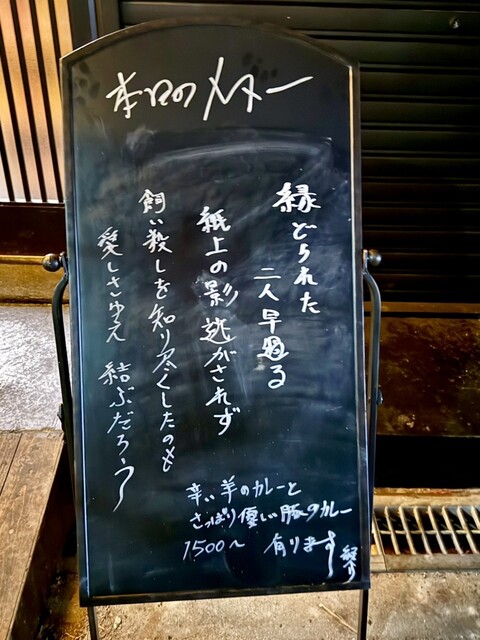 本日のメニュー
縁どられた
二人早過る
紙上の影 逃がされず
飼い殺しを知り尽くしたのも
愛しさゆえ 結ぶだろう
辛い羊のカレーと
さっぱり優しい豚のカレー
1500〜 有ります